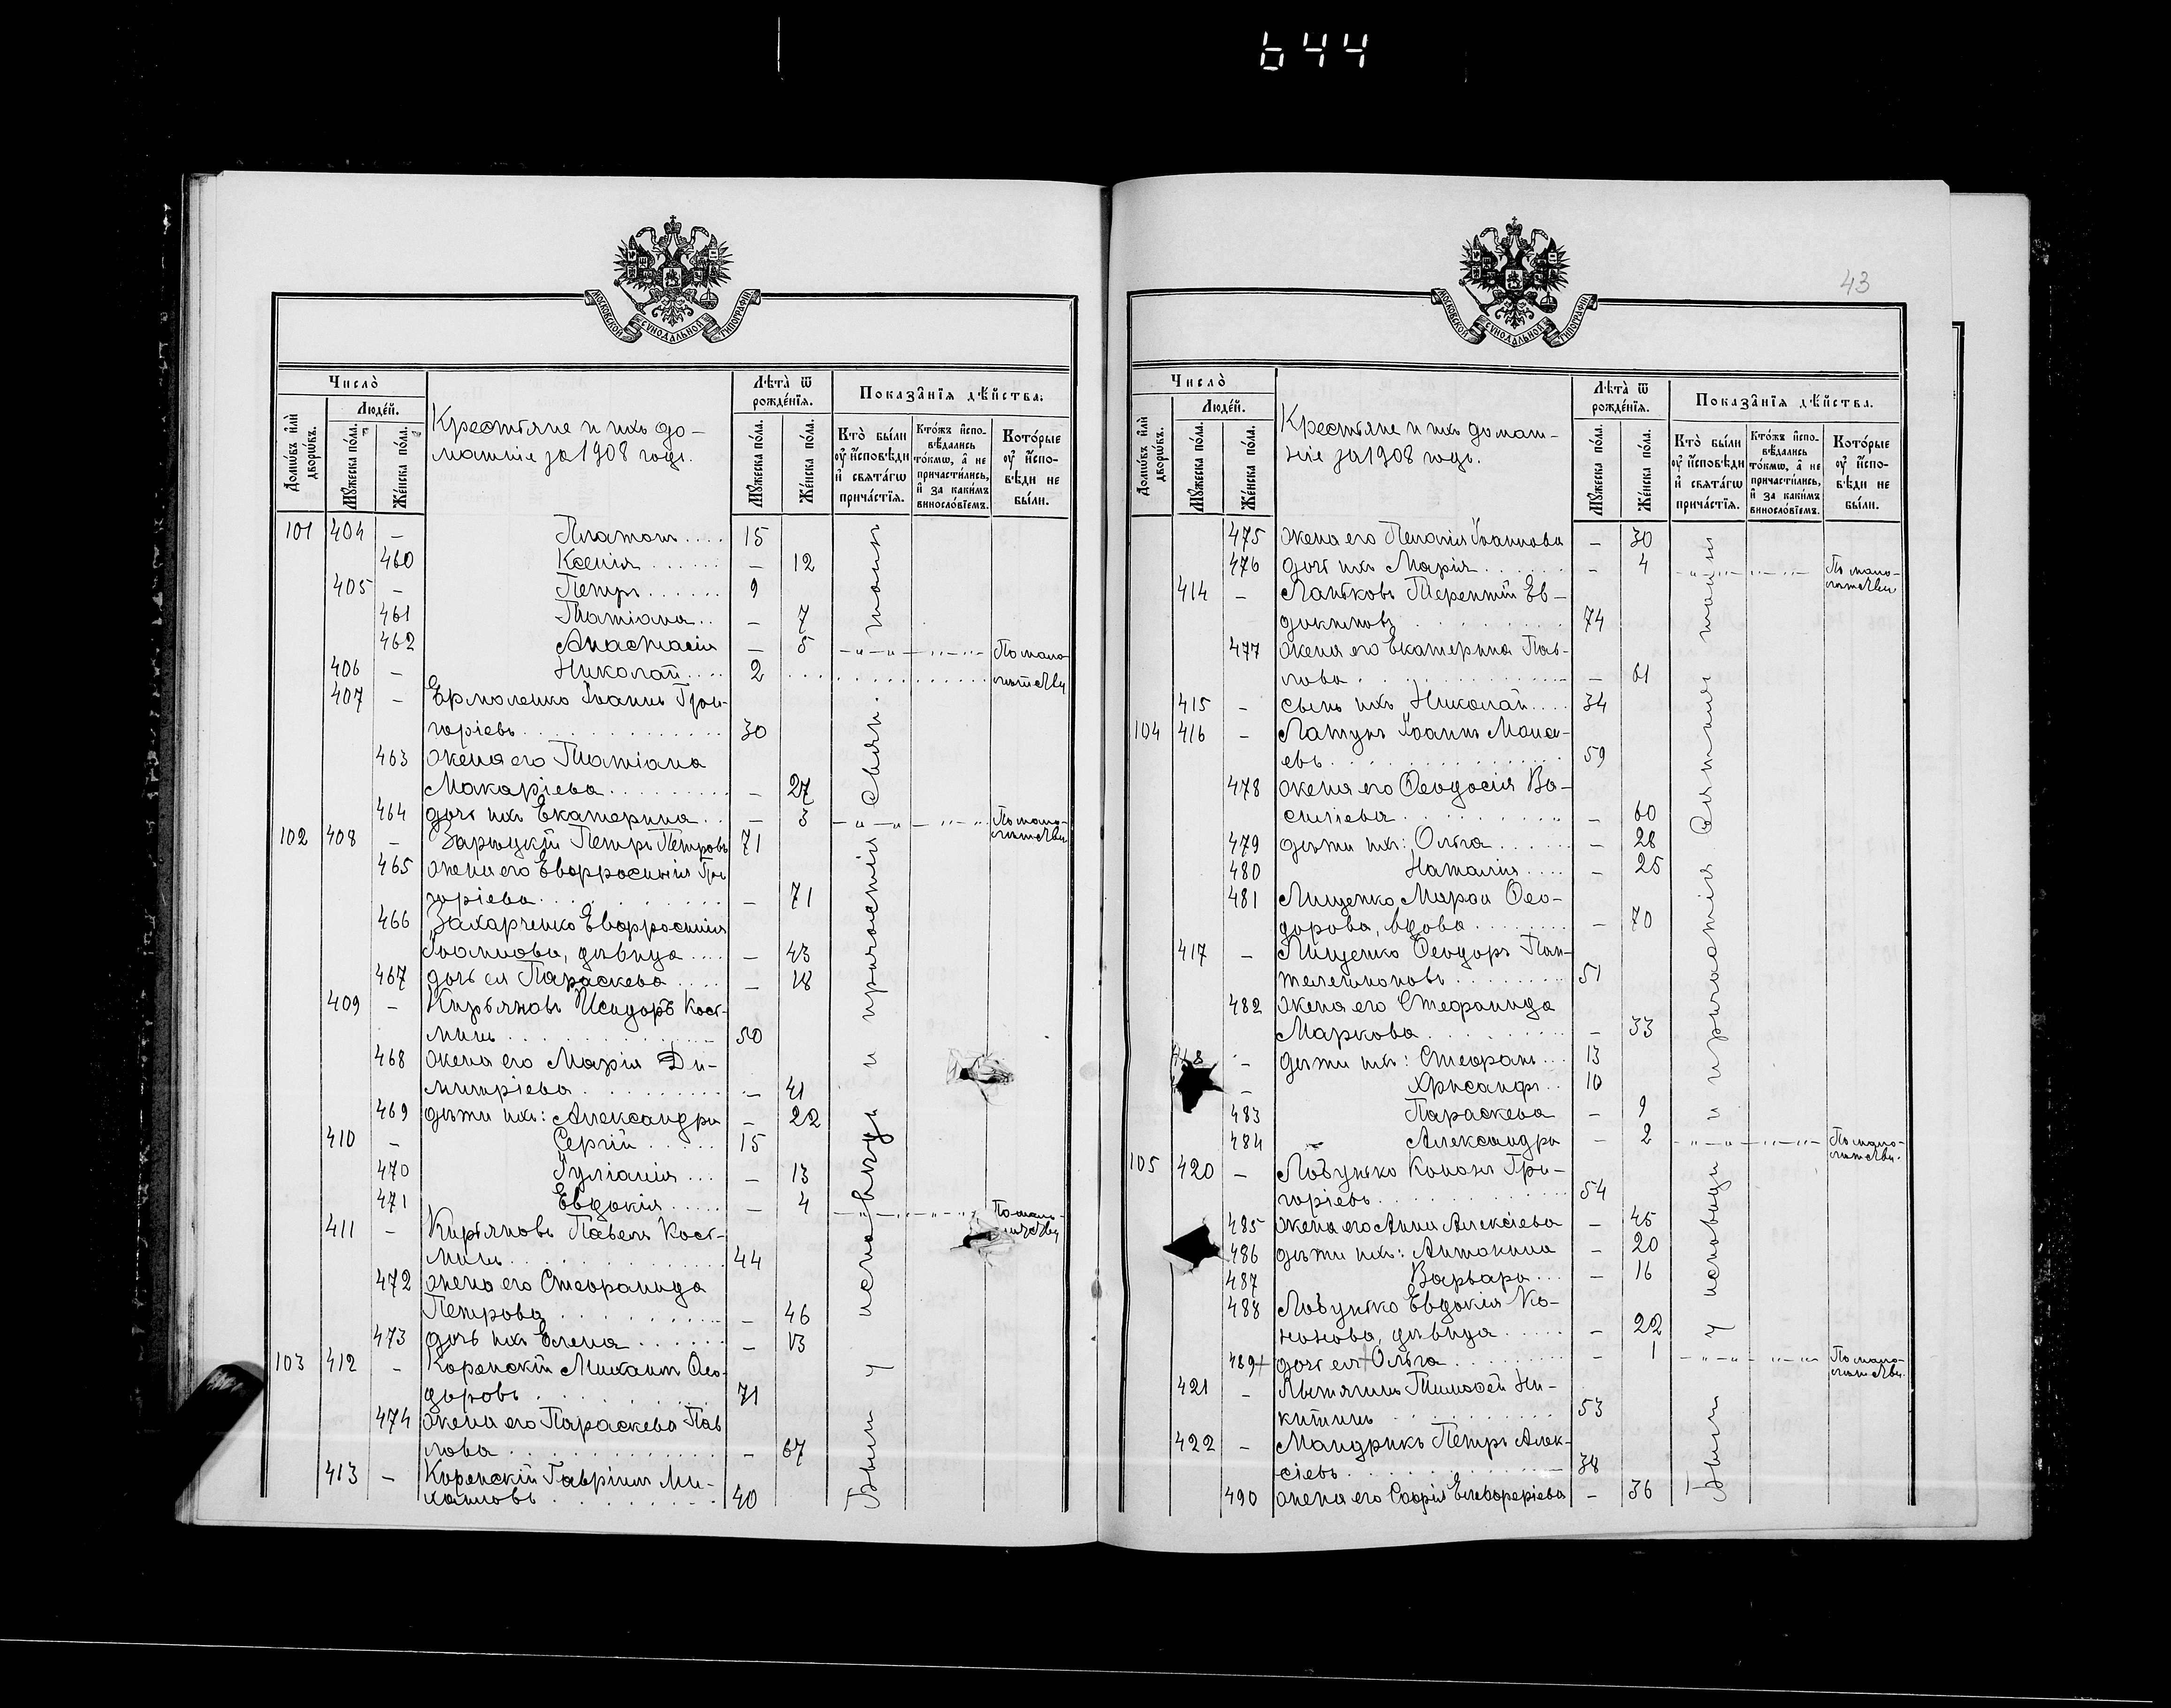 644
МОСКОВСКОЙ СУНОДАЛЬНОЙ ТИПОГРАФІИ
Число̀
Домѡ́въ и҆лѝ дворѡ́въ.
Людє́й.
Мꙋ́жеска по́ла.
Же́нска по́ла.
Крестьяне и ихъ до-
машніе за 1908 годъ.
Лѣ́та ѿ рожде́нїѧ.
Мꙋ́жеска по́ла.
Же́нска по́ла.
Показа̑нїѧ дѣ́йства.
Кто̀ бы́ли ᲂу҆ и҆́сповѣди и҆ свѧта́гѡ прича́стїѧ.
Кто́жъ и҆спо-вѣ́дались то́кмѡ, а҆ не причасти́лись, и҆ за каки́мъ винослѡ́вїемъ.
Кото́рые ᲂу҆ и҆́спо-вѣди не бы́ли.
101 404 – Платонъ .... 15
460 Ксенія ...... – 12
405 – Петръ ...... 9
461 Татіана .. – 7
462 Анастасія – 5 По мало-
406 – Николай .... 2 лѣтству
407 – Ермоленко Іоаннъ Гри-
горіевъ ............ 30
463 жена его Татіана
Макаріева ......... – 27
464 дочь ихъ Екатерина .. – 3 По мало-
лѣтству
102 408 – Зарицкій Петръ Петровъ 71
465 жена его Евфросинія Гри
горіева ........... – 71
466 Захарченко Евфросинія
Іоаннова, дѣвица .... – 43
467 дочь ея Параскева ..... – 18
409 – Кирьяновъ Исидоръ Кось-
минъ ............ 50
468 жена его Марія Ди-
митріева ......... – 41
469 дѣти ихъ: Александра – 22
410 – Сергій ..... 15
470 Іуліанія ... – 13
471 Евдокія ..... – 4 По мало-
лѣтству
411 – Кирьяновъ Павелъ Кось-
минъ ............. 44
472 жена его Стефанида
Петрова .......... – 46
473 дочь ихъ Елена ....... – 13
103 412 – Коренскій Михаилъ Ѳео-
доровъ ............ 71
474 жена его Параскева Пав
лова ............. – 67
413 – Коренскій Гавріилъ Ми-
хаиловъ .......... 40
Были у исповѣди и причастія Святыхъ Тайнъ
43
МОСКОВСКОЙ СУНОДАЛЬНОЙ ТИПОГРАФІИ
Число̀
Домѡ́въ и҆лѝ дворѡ́въ.
Людє́й.
Мꙋ́жеска по́ла.
Же́нска по́ла.
Крестьяне и ихъ домаш-
ніе за 1908 годъ.
Лѣ́та ѿ рожде́нїѧ.
Мꙋ́жеска по́ла.
Же́нска по́ла.
Показа̑нїѧ дѣ́йства.
Кто̀ бы́ли ᲂу҆ и҆́сповѣди и҆ свѧта́гѡ прича́стїѧ.
Кто́жъ и҆спо-вѣ́дались то́кмѡ, а҆ не причасти́лись, и҆ за каки́мъ винослѡ́вїемъ.
Кото́рые ᲂу҆ и҆́спо-вѣди не бы́ли.
475 жена его Пелагія Іоаннова – 30
476 дочь ихъ Марія ...... – 4 По мало-
лѣтству
414 – Латковъ Терентій Ев-
докимовъ ......... 74
477 жена его Екатерина Пав-
лова ............. – 61
415 – сынъ ихъ Николай .... 34
104 416 – Латунъ Іоаннъ Мана-
евъ .............. 59
478 жена его Ѳеодосія Ва-
силіева .......... – 60
479 дѣти ихъ: Ольга ...... – 28
480 Наталія .... – 25
481 Лищенко Марѳа Ѳео-
дорова, вдова ........ – 70
417 – Лищенко Ѳеодоръ Пан-
телеимоновъ ......... 51
482 жена его Стефанида
Маркова ............ – 33
418 – дѣти ихъ: Стефанъ ... 13
– Хрисанфъ .. 10
483 Параскева – 9
484 Александра – 2 По мало-
лѣтству.
105 420 – Лобунько Кононъ Гри-
горіевъ ............ 54
485 жена его Анна Алексіева – 45
486 дѣти ихъ: Антонина – 20
487 Варвара ... – 16
488 Лобунько Евдокія Ко-
нонова, дѣвица ..... – 22
489+ дочь ея+Ольга ......... – 1 По мало-
лѣтству.
421 – Лытягинъ Тимоѳей Ни-
китинъ .......... 53
422 – Мандрикъ Петръ Алек-
сіевъ ............ 38
490 жена его Софія Елевферіева – 36
Были у исповѣди и причастія Святыхъ Тайнъ